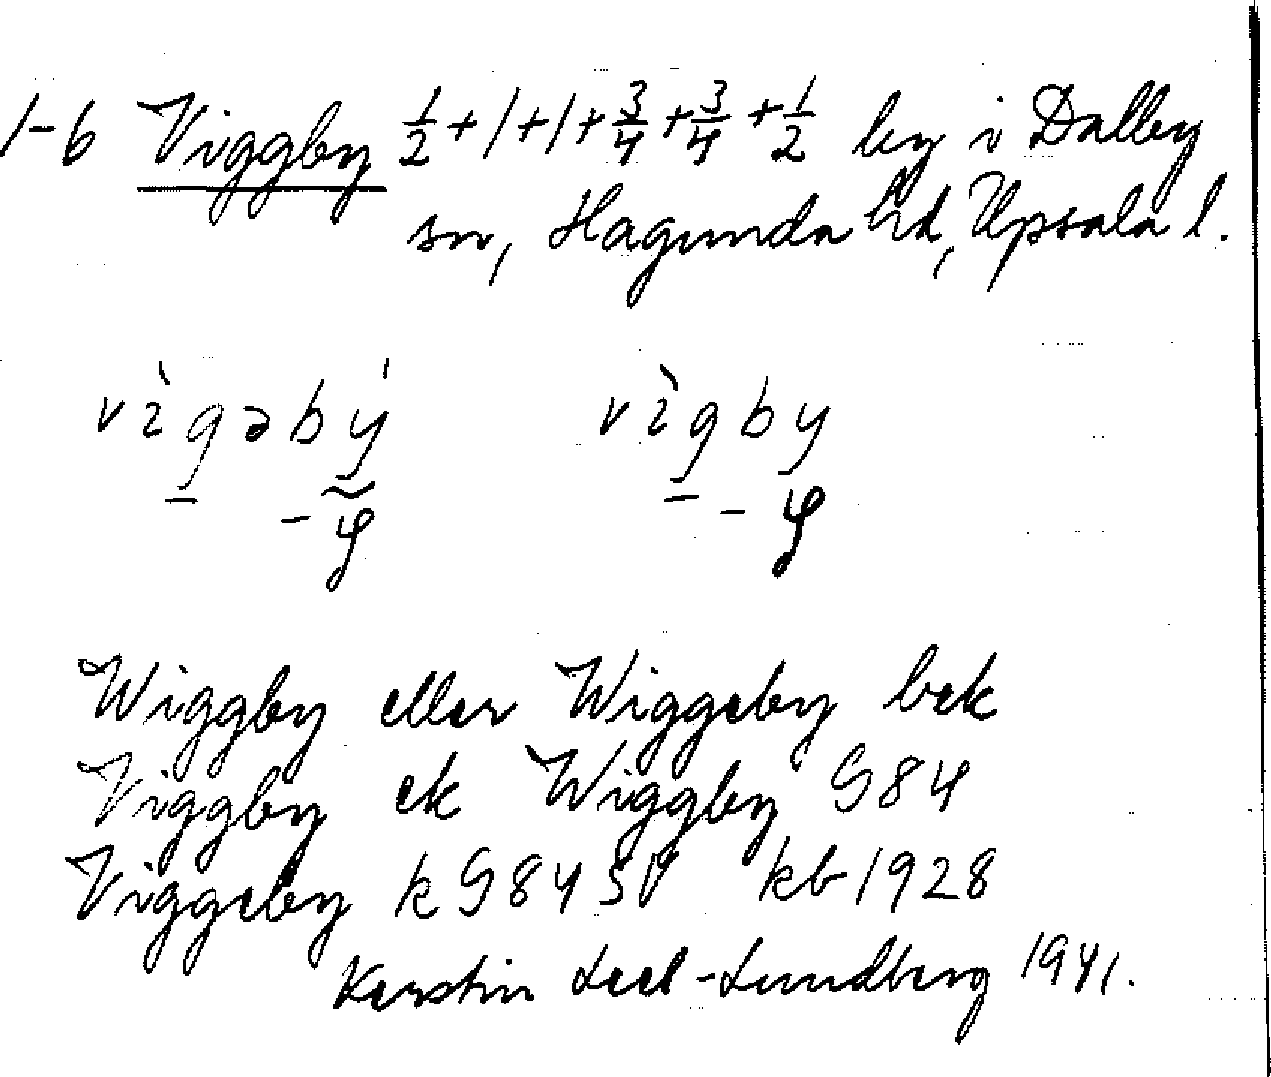 1-6 Viggby 1/2+1+1+3/4+3/4+1/2 by i Dalby
sn, Hagunda hd, Upsala l.
vìgəbý vìgby
Wiggby eller Wiggeby bek
Viggby ek Wiggby G84
Viggeby k G84 SV kb 1928
Kerstin Leel-Lundberg 1941.